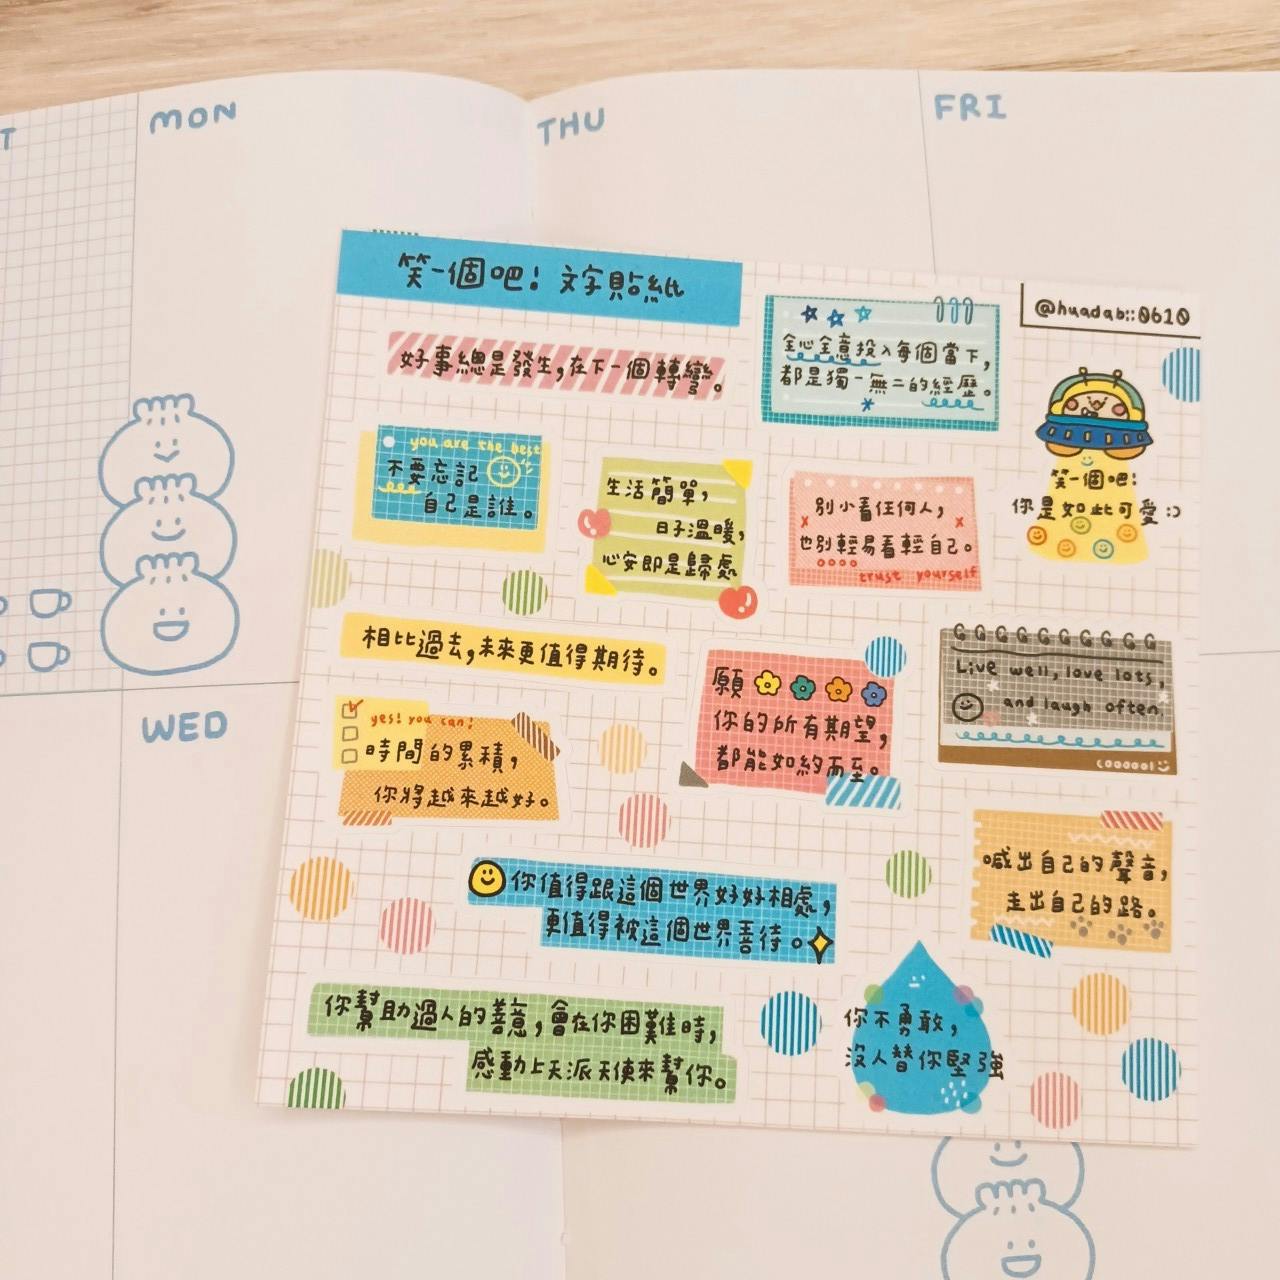 T
MON
THU
FRI
WED
笑一個吧！文字貼紙
@huadab::0610
好事總是發生，在下一個轉彎。
全心全意投入每個當下，
都是獨一無二的經歷。
you are the best
不要忘記
自己是誰。
生活簡單，
日子溫暖，
心安即是歸處
別小看任何人，
也別輕易看輕自己。
trust yourself
笑一個吧！
你是如此可愛:)
相比過去，未來更值得期待。
願
你的所有期望，
都能如約而至。
Live well, love lots,
and laugh often.
cooooo!
yes! you can!
時間的累積，
你將越來越好。
喊出自己的聲音，
走出自己的路。
你值得跟這個世界好好相處，
更值得被這個世界善待。
你幫助過人的善意，會在你困難時，
感動上天派天使來幫你。
你不勇敢，
沒人替你堅強